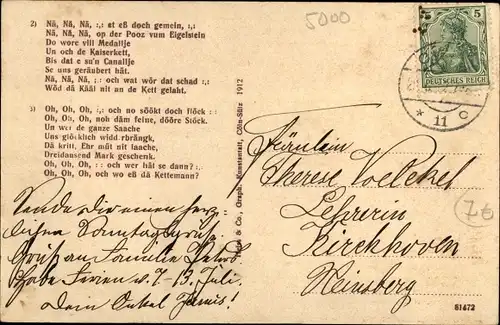 5000
2) Nä, Nä, Nä, :,: at eß doch gemein, :,:
Nä, Nä, Nä, op der Pooz vum Eigelstein
Do wore vill Medallje
Un och de Kaiserkett,
Bis dat e su'n Canallje
Se uns geräubert hät.
Nä, Nä, Nä, :,: och wat wör dat schad :,:
Wöd dä Kääl nit an de Kett gelaht.
3) Oh, Oh, Oh, :,: och no söökt doch flöck :,:
Oh, Oh, Oh, noh däm feine, dööre Stöck.
Un wer de ganze Saache
Uns glöcklich widd rbrängk,
Dä kritt, Ehr müt nit laache,
Dreidausend Mark geschenk.
Oh, Oh, Oh, :,: och wer hät se dann? :,:
Oh, Oh, Oh, och wo eß dä Kettemann?
& Co., Graph. Kunstanstalt, Cöln-Sülz 1912
5 5
DEUTSCHES REICH
* 11 c
Fräulein
Therese Voelchel
Lehrerin
Kirchhoven
Heinsberg
76
Sende dir einen herz
lichen Sonntagsgruß
Gruß an Familie
habe Ferien v. 7-13. Juli.
Dein Onkel
81672